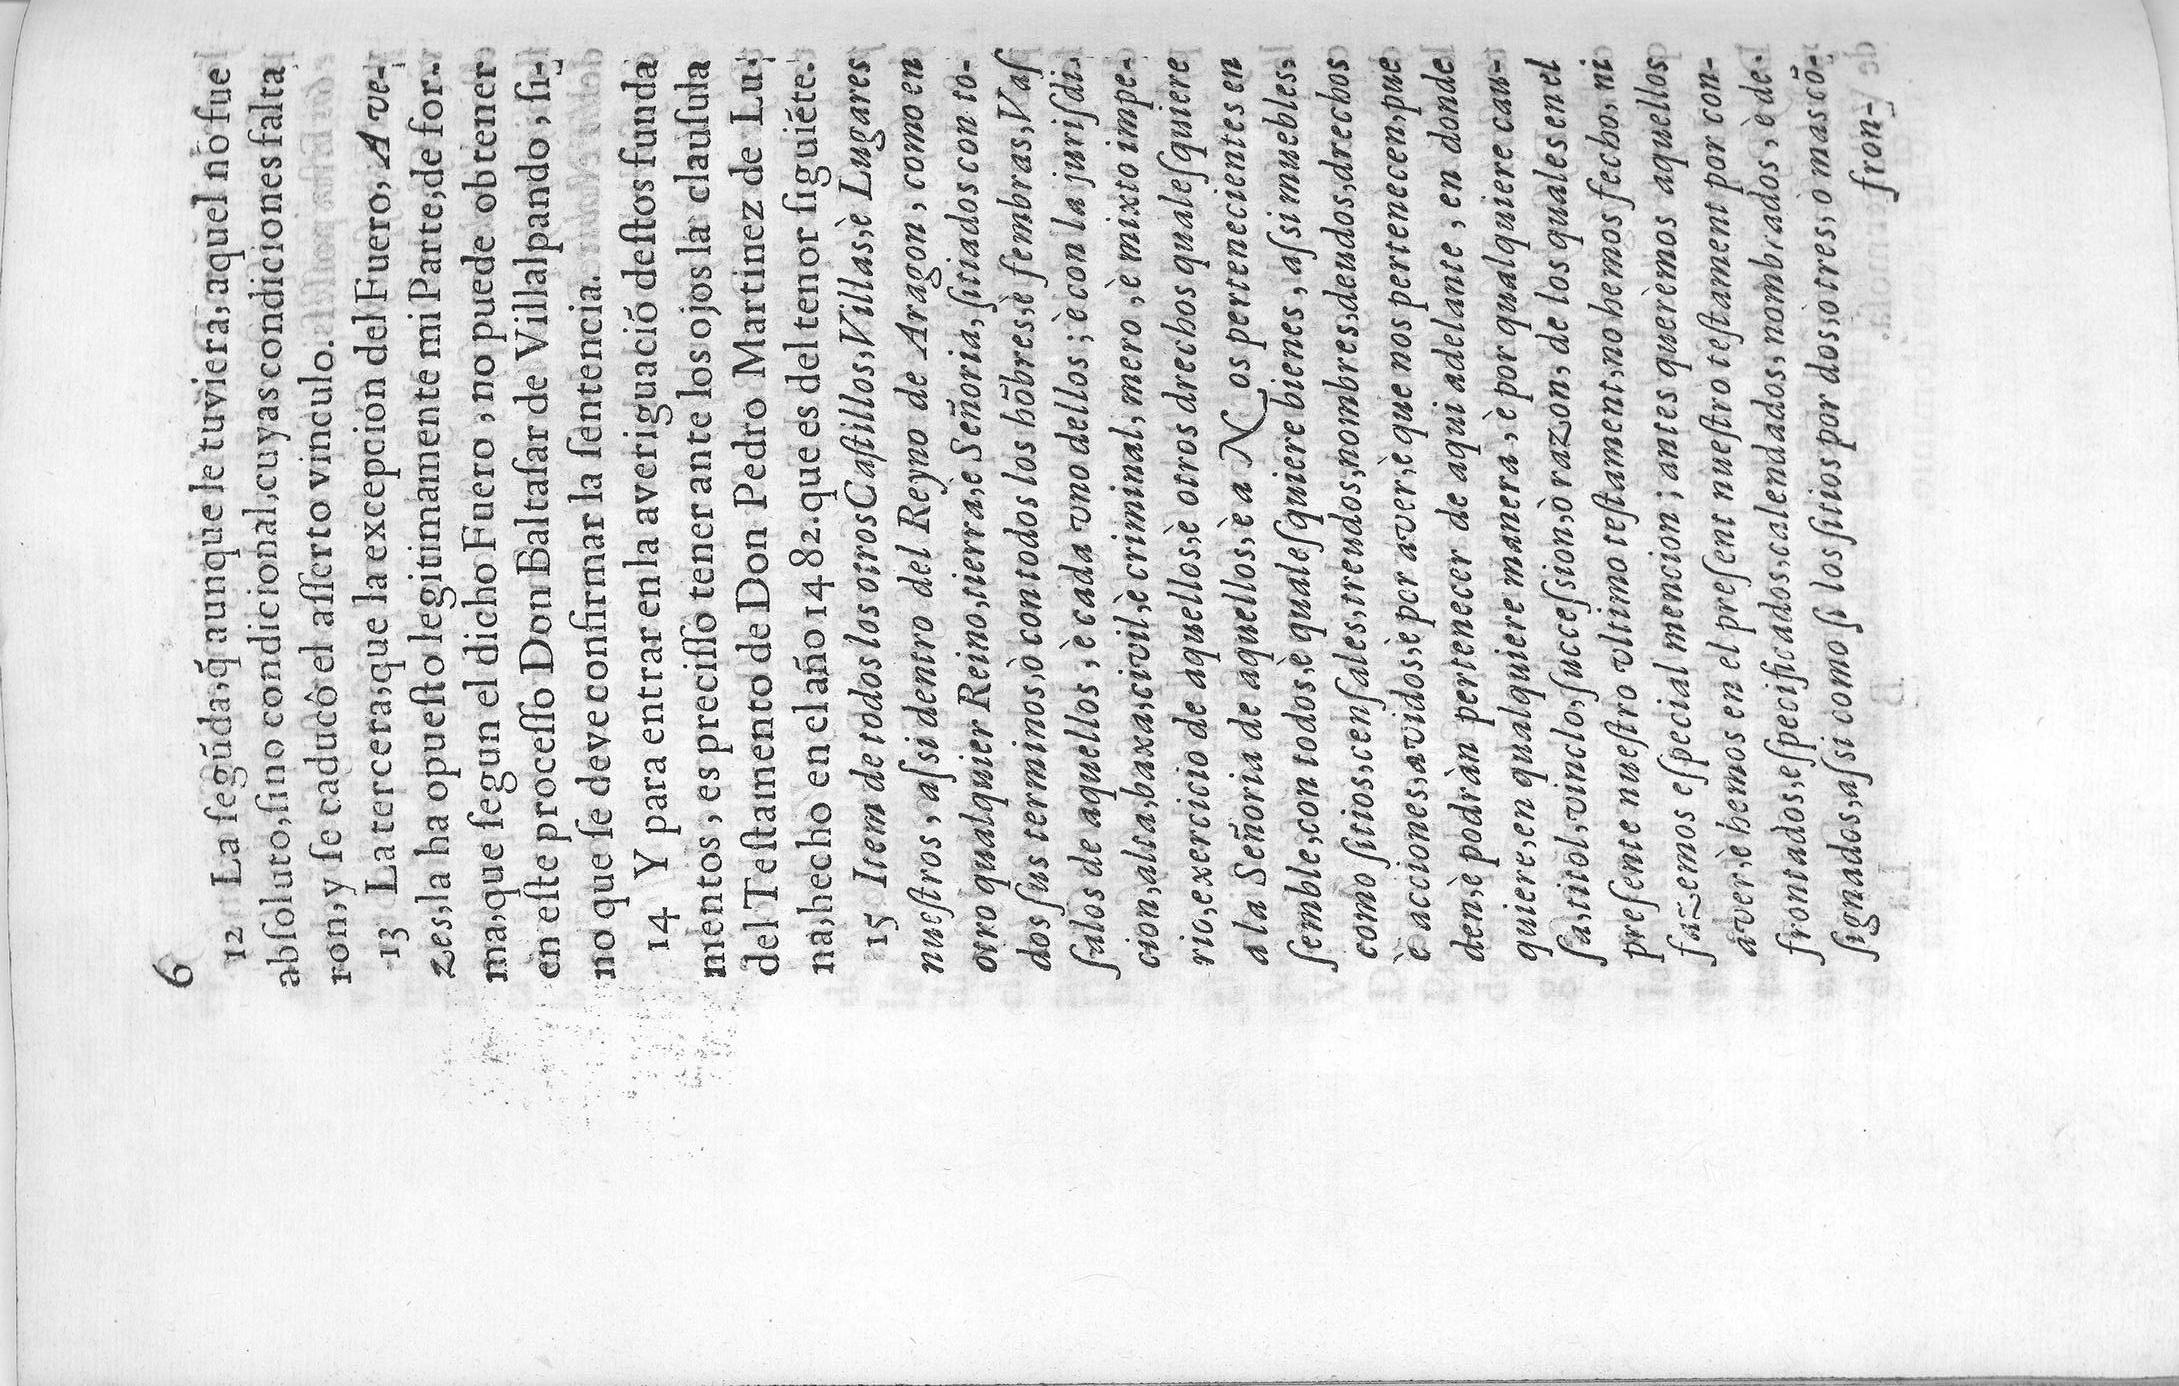 6
12 La ſegũda, q́ aunque le tuviera, aquel no fue
abſoluto, ſino condicional, cuyas condiciones falta
ron, y ſe caducô el aſſerto vinculo.
13 La tercera, que la excepcion del Fuero, A ve-
zes, la ha opueſto legitimamente mi Parte, de for-
ma, que ſegun el dicho Fuero, no puede obtener
en eſte proceſſo Don Baltaſar de Villalpando, ſi-
no que ſe deve confirmar la ſentencia.
14 Y para entrar en la averiguaciõ deſtos funda
mentos, es preciſſo tener ante los ojos la clauſula
del Teſtamento de Don Pedro Martinez de Lu-
na, hecho en el año 1482. que es del tenor ſiguiẽte.
15 Item de todos los otros Caſtillos, Villas, è Lugares
nueſtros, aſsi dentro del Reyno de Aragon, como en
otro qualquier Reino, tierra, e Señoria, ſitiados con to-
dos ſus terminos, ò con todos los hõbres, è fembras, Vaſ
ſalos de aquellos, è cada vno dellos; è con la juriſdi-
cion, alta, baxa, civil, è criminal, mero, è mixto impe-
rio, exercicio de aquellos, è otros drechos qualeſquiere
a la Señoria de aquellos, è a Nos pertenecientes en
ſemble, con todos, è qualeſquiere bienes, aſsi muebles,
como ſitios, cenſales, treudos, nombres, deudos, drechos
è acciones, avidos, è por aver, è que nos pertenecen, pue
den, è podràn pertenecer de aqui adelante, en donde
quiere, en qualquiere manera, è por qualquiere cau-
ſa, titol, vinclo, ſucceſsion, ò razon, de los quales en el
preſente nueſtro vltimo teſtament, no hemos fecho, ni
fazemos eſpecial mencion; antes querèmos aquellos
aver, è hemos en el preſent nueſtro teſtament por con-
frontados, eſpecificados, calendados, nombrados, è de-
ſignados, aſsi como ſi los ſitios por dos, ò tres, ò mas cõ-
fron-